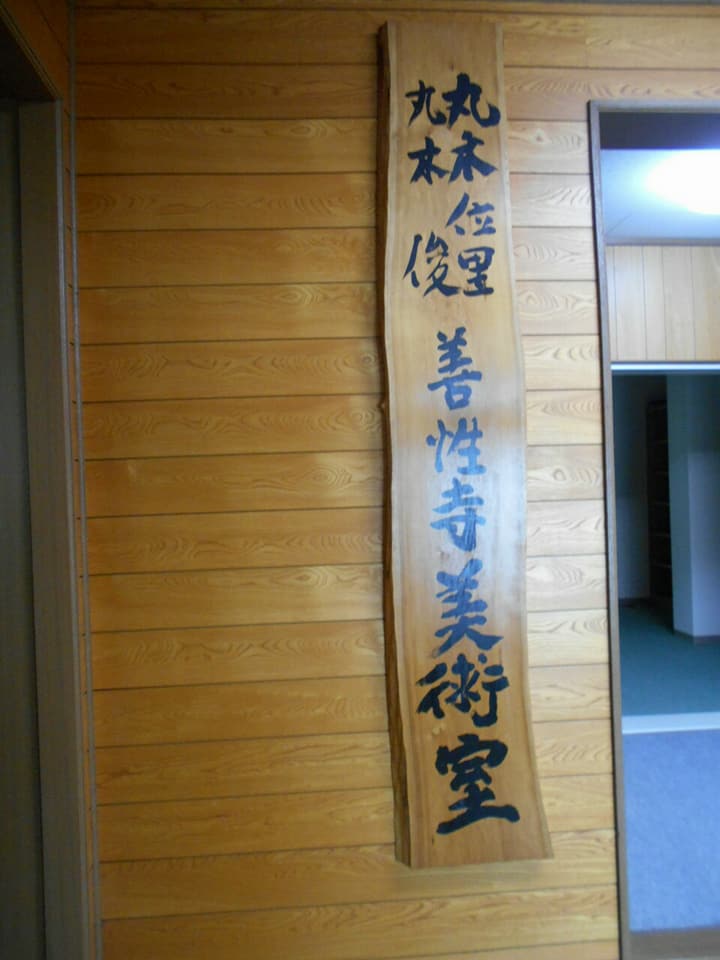 丸木位里
丸木俊
善性寺美術室